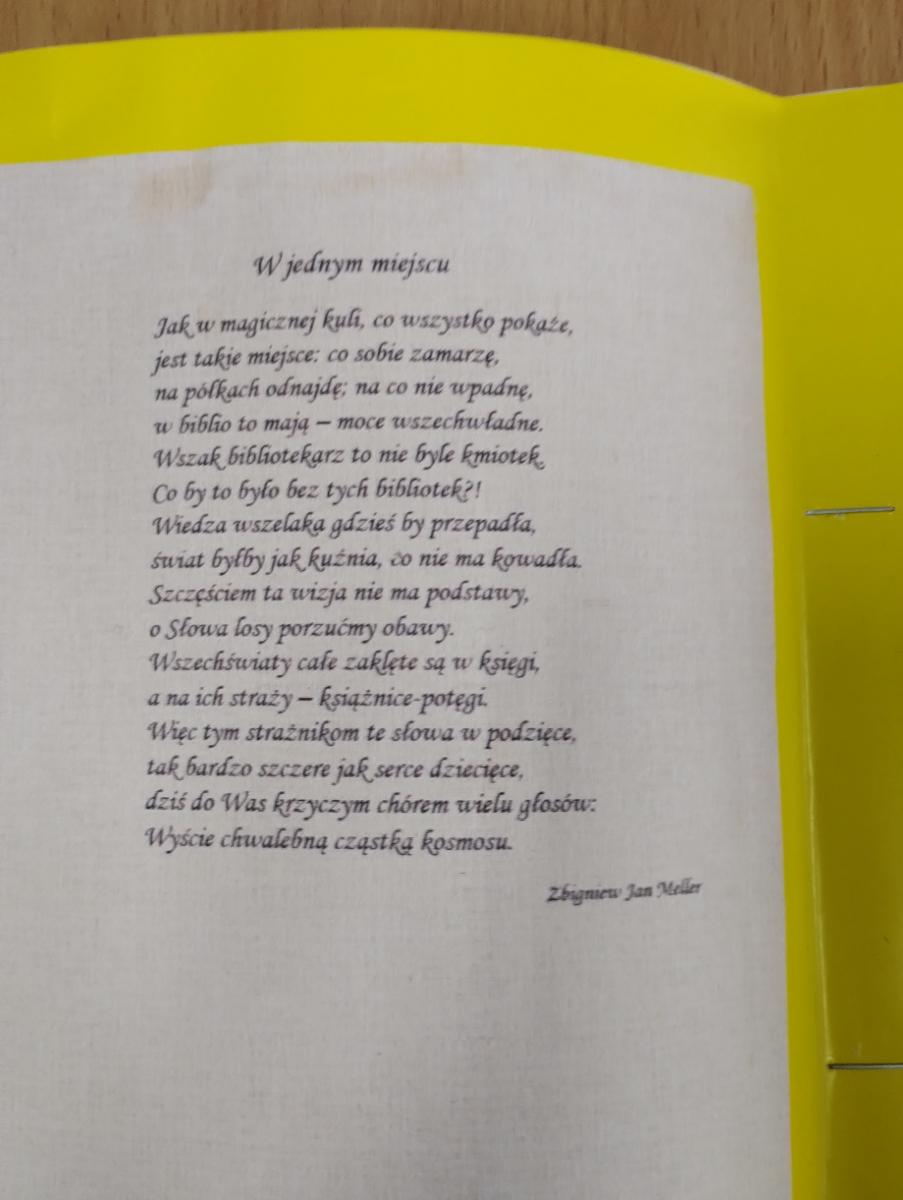 W jednym miejscu
Jak w magicznej kuli, co wszystko pokaże,
jest takie miejsce: co sobie zamarzę,
na półkach odnajdę; na co nie wpadnę,
w biblio to mają – moce wszechwładne.
Wszak bibliotekarz to nie byle kmiotek,
Co by to było bez tych bibliotek?!
Wiedza wszelaka gdzieś by przepadła,
świat byłby jak kuźnia, co nie ma kowadła.
Szczęściem ta wizja nie ma podstawy,
o Słowa losy porzućmy obawy.
Wszechświaty całe zaklęte są w księgi,
a na ich straży – książnice-potęgi.
Więc tym strażnikom te słowa w podzięce,
tak bardzo szczere jak serce dziecięce,
dziś do Was krzyczym chórem wielu głosów:
Wyście chwalebną cząstką kosmosu.
Zbigniew Jan Meller